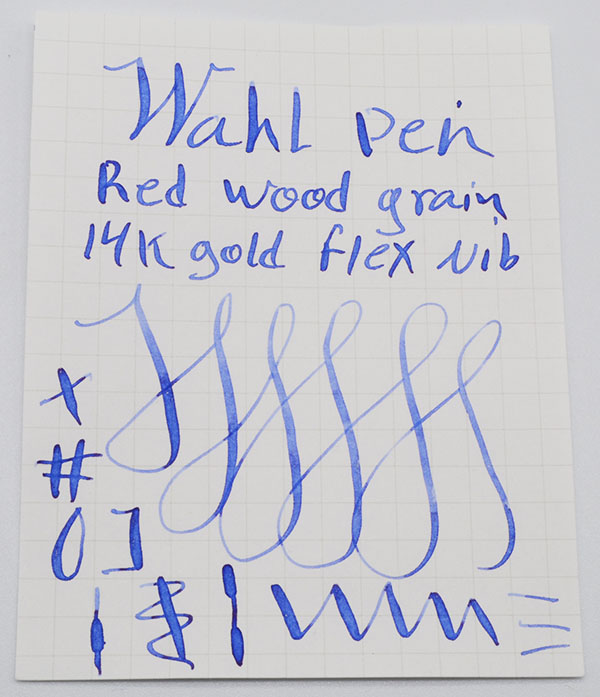 Wahl pen
Red wood grain
14K gold flex Nib
x
#
0 ]